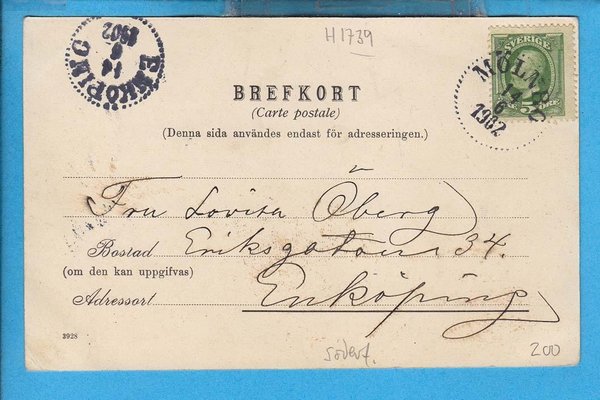 H1739
ENKÖPING
14
6
1902
SVERIGE
MÖLNBO
14
6
1902
BREFKORT
(Carte postale)
(Denna sida användes endast för adresseringen.)
Fru Lovisa Öberg
Bostad Eriksgatan 34.
(om den kan uppgifvas)
Adressort Enköping
3928
södert.
200